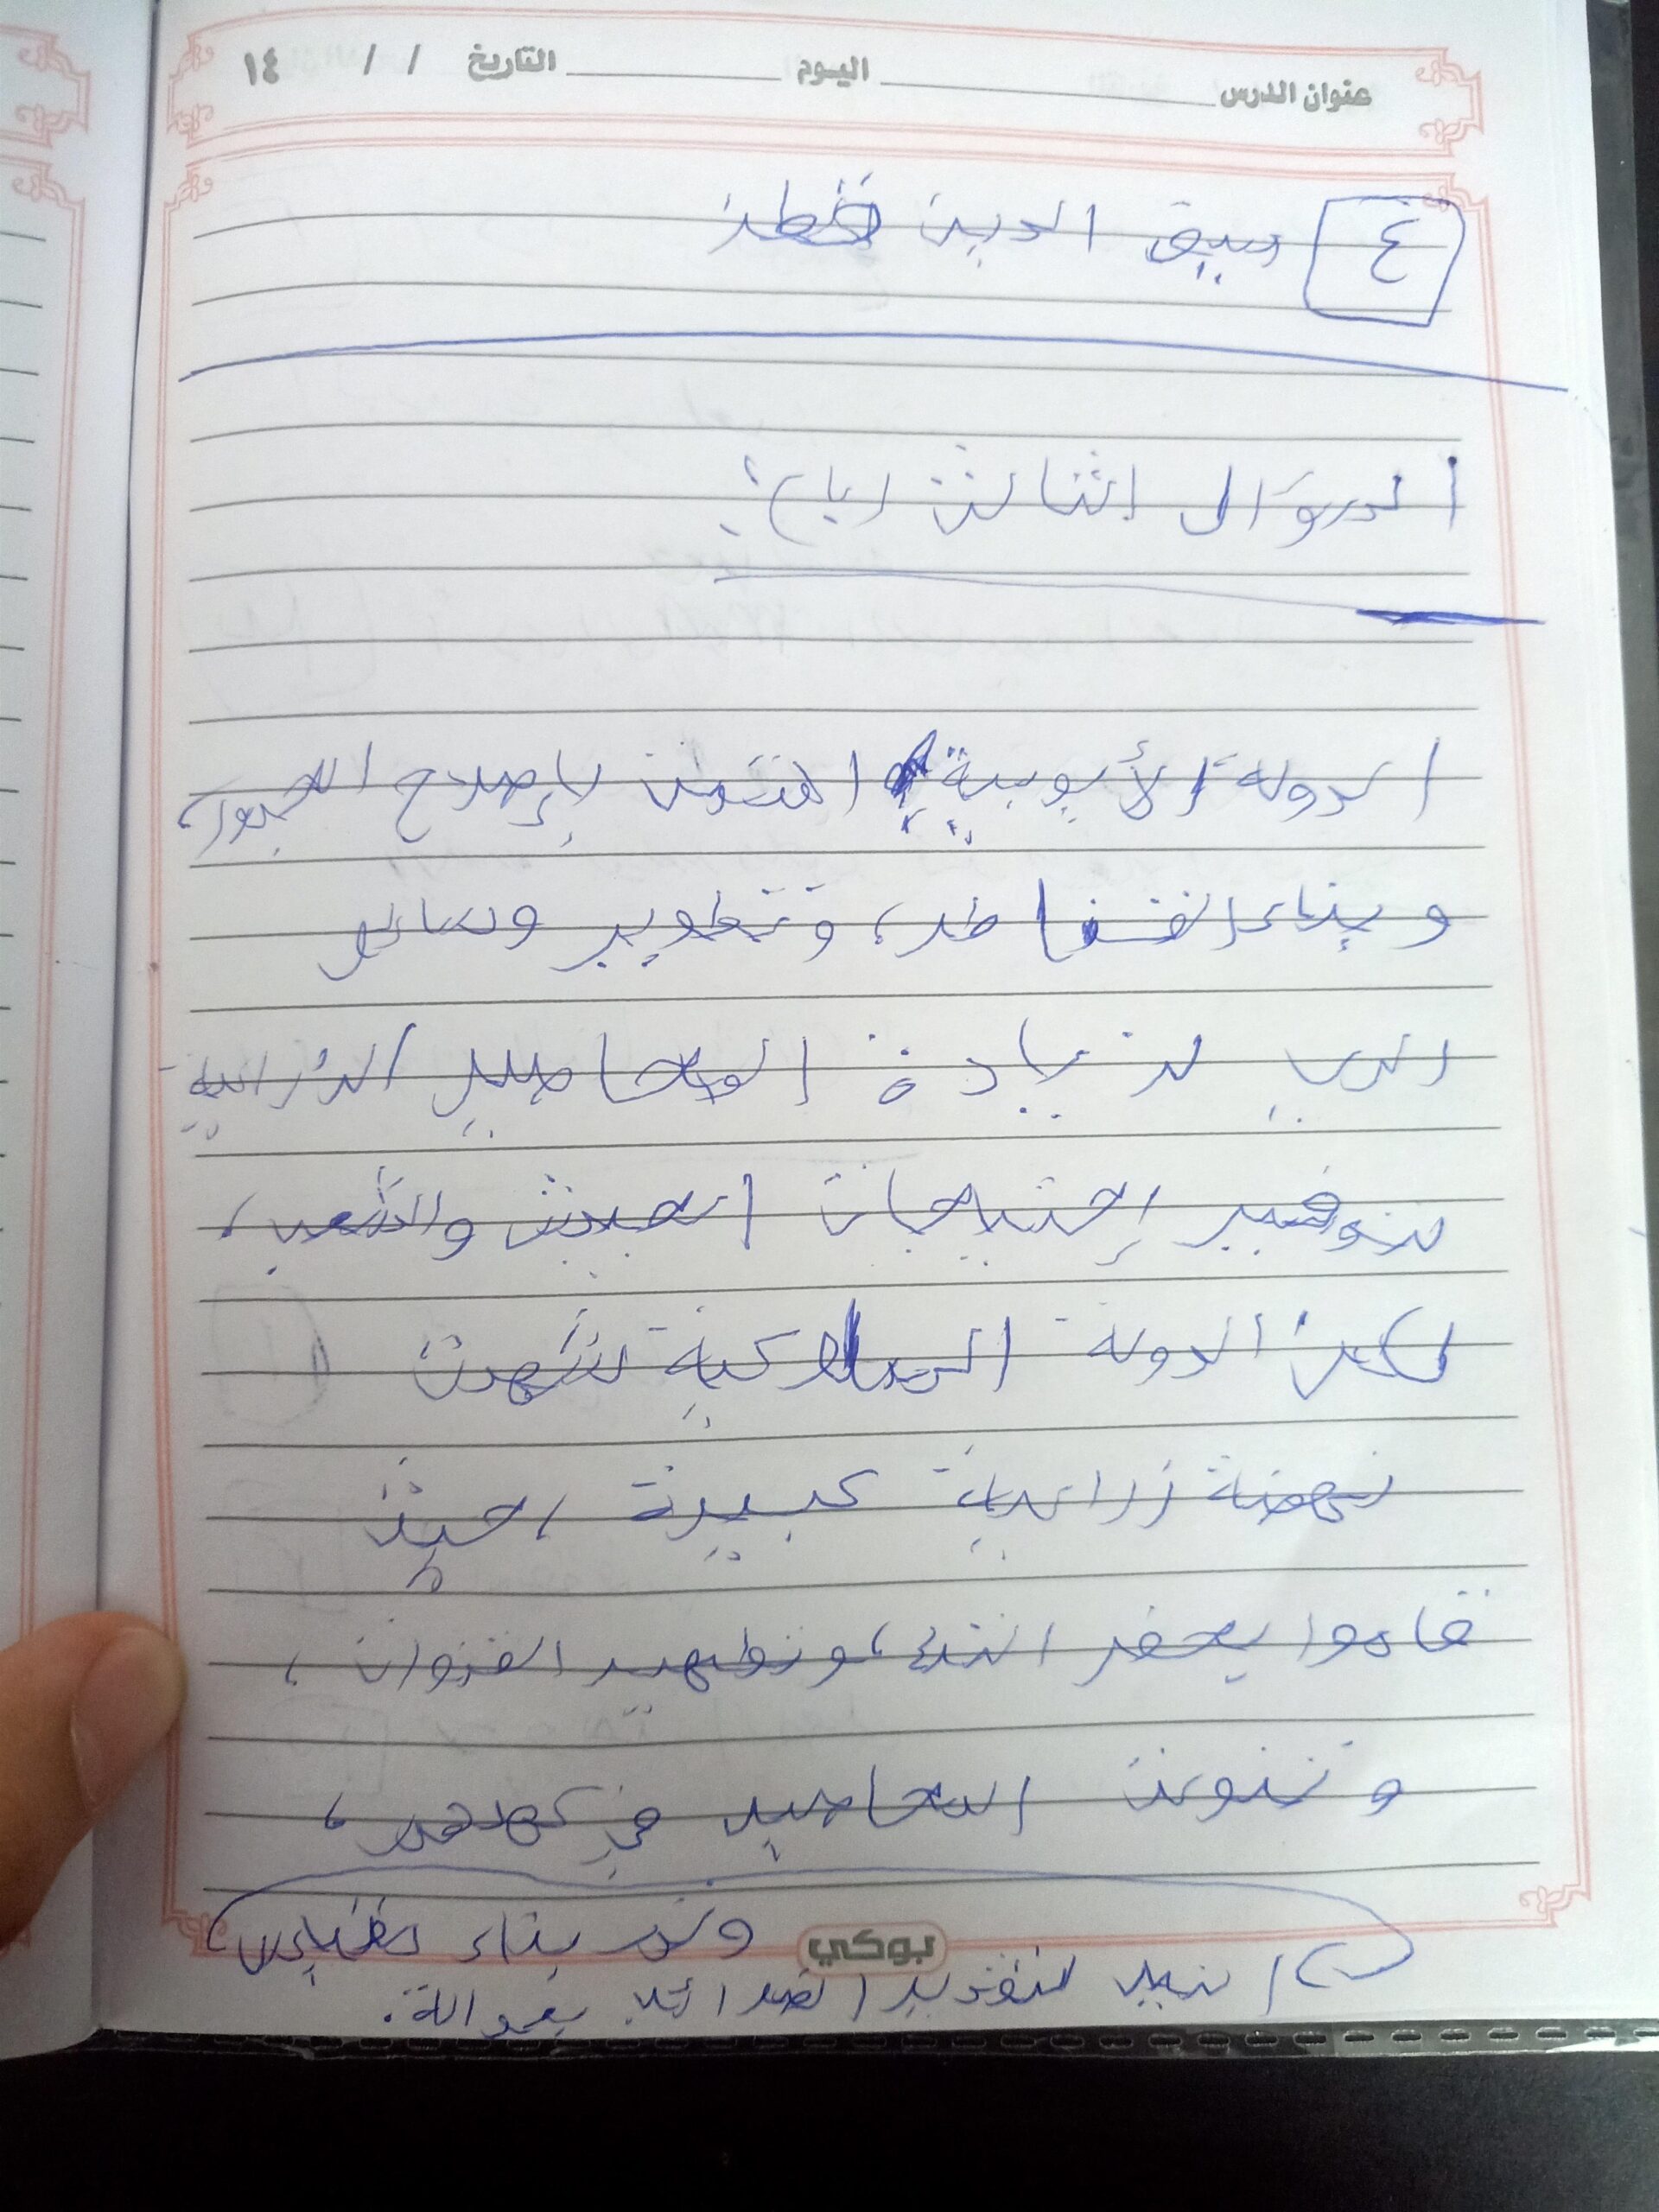 عنوان الدرس اليوم التاريخ / / ١٤
٤ سيف الدين قطز
السؤال الثالث (باء):
الدولة الأيوبية اهتمت بإصلاح الجسور،
وبناء القناطر، وتطوير وسائل
الري لزيادة المحاصيل الزراعية
لتوفير إحتياجات الجيش والشعب،
لكن الدولة المملوكية شهدت
نهضة زراعية كبيرة، حيث
قاموا بحفر الترع، وتطهير القنوات،
وتنوعت المحاصيل في عهدهم،
وتم بناء مقياس
النيل لتقدير الضرائب بعدالة.
بوكي